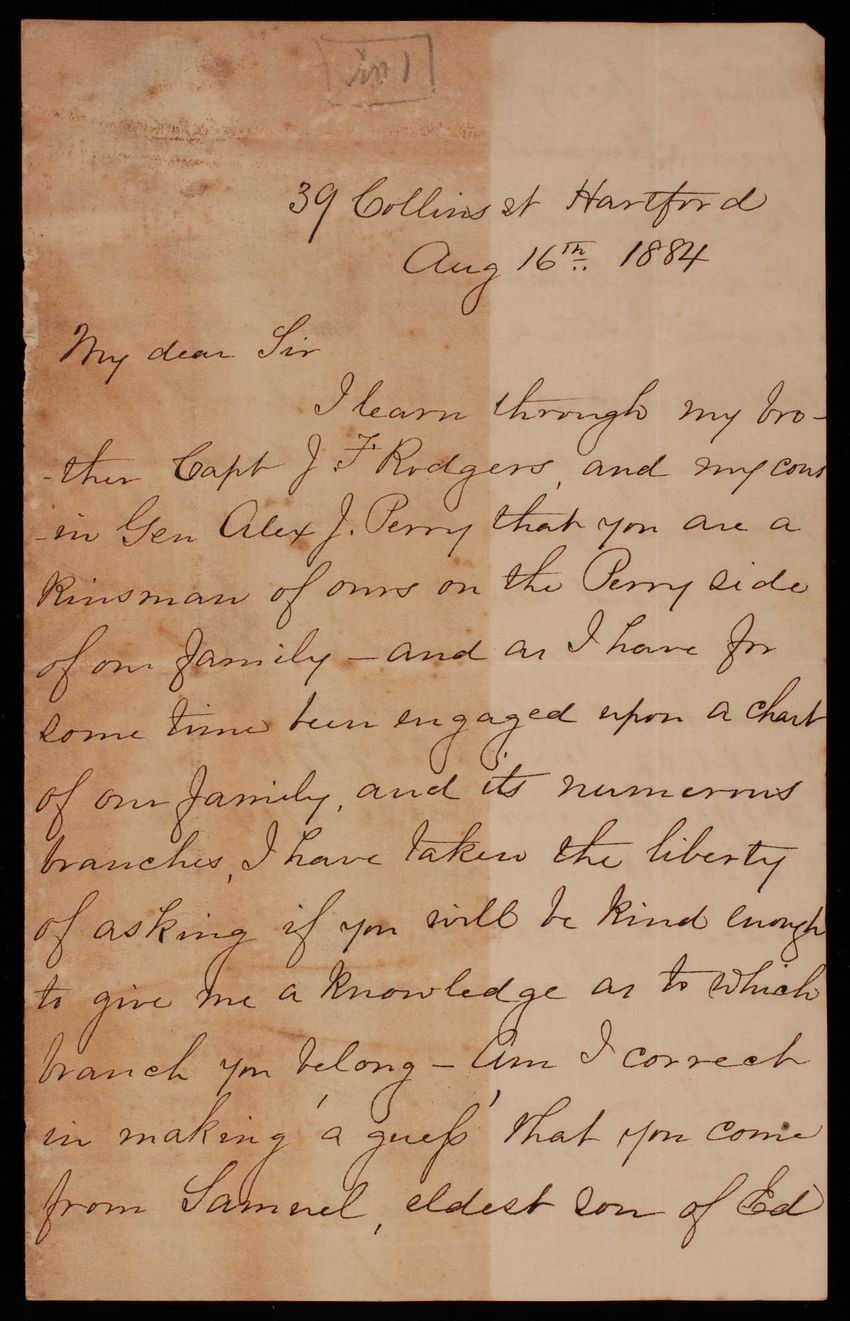 in 1
39 Collins st Hartford
Aug 16th 1884
My dear Sir
I learn through my bro-
-ther Capt J. F Rodgers, and my cous
-in Gen Alex J. Perry that you are a
kinsman of ours on the Perry side
of our family - and as I have for
some time been engaged upon a chart
of our family, and its numerous
branches, I have taken the liberty
of asking if you will be kind enough
to give me a knowledge as to which
branch you belong - Am I correct
in making 'a guess' that you come
from Samuel, eldest son of Ed